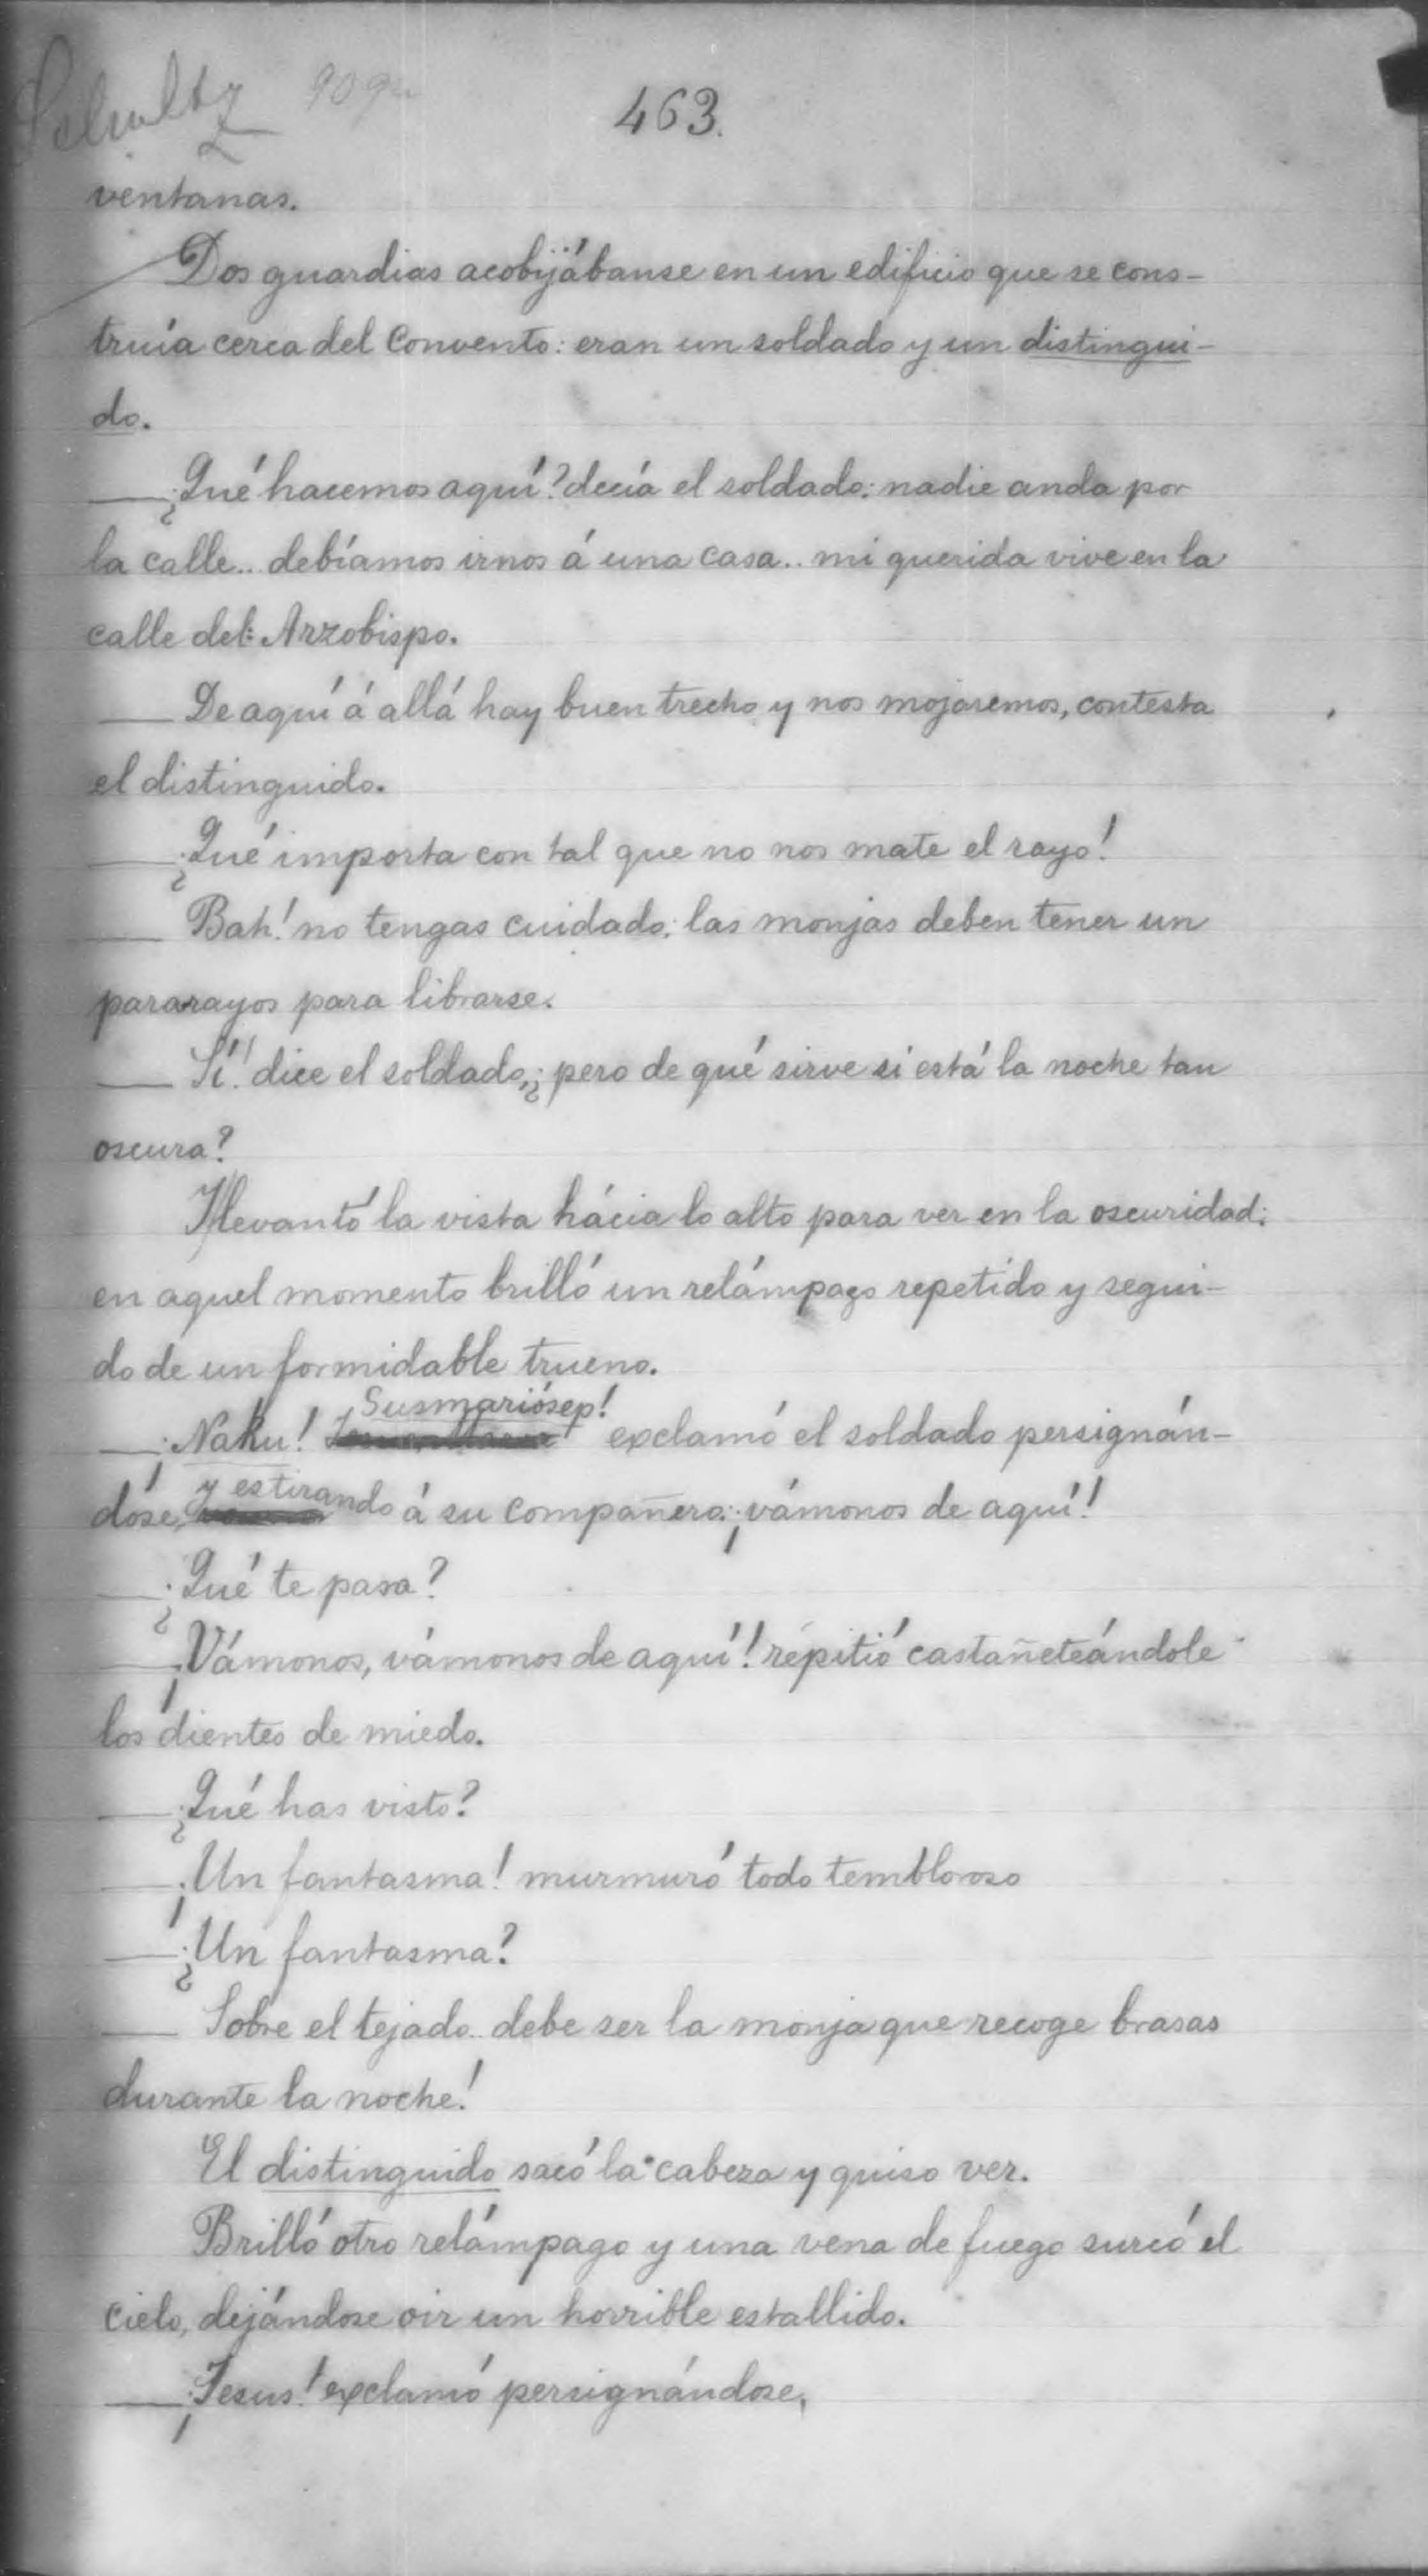 Schultz
463.
ventanas.
Dos guardias acobijábanse en un edificio que se cons-
truía cerca del Convento: eran un soldado y un distingui-
do.
—¿Qué hacemos aquí? decía el soldado: nadie anda por
la calle.. debíamos irnos á una casa.. mi querida vive en la
calle del Arzobispo.
— De aquí á allá hay buen trecho y nos mojaremos, contesta
el distinguido.
—¿Qué importa con tal que no nos mate el rayo!
— Bah! no tengas cuidado; las monjas deben tener un
pararayos para librarse.
— Sí! dice el soldado, ¿pero de qué sirve si está la noche tan
oscura?
Y levantó la vista hácia lo alto para ver en la oscuridad:
en aquel momento brilló un relámpago repetido y segui-
do de un formidable trueno.
Susmariósep!
—¡Naku! exclamó el soldado persignán-
y estirando
dose, á su compañero: ¡vámonos de aquí!
—¿Qué te pasa?
—¡Vámonos, vámonos de aquí! repitió castañeteándole
los dientes de miedo.
—¿Qué has visto?
—¡Un fantasma! murmuró todo tembloroso
—¿Un fantasma?
— Sobre el tejado.. debe ser la monja que recoge brasas
durante la noche!
El distinguido sacó la cabeza y quiso ver.
Brilló otro relámpago y una vena de fuego surcó el
cielo, dejándose oir un horrible estallido.
—¡Jesus! exclamó persignándose,